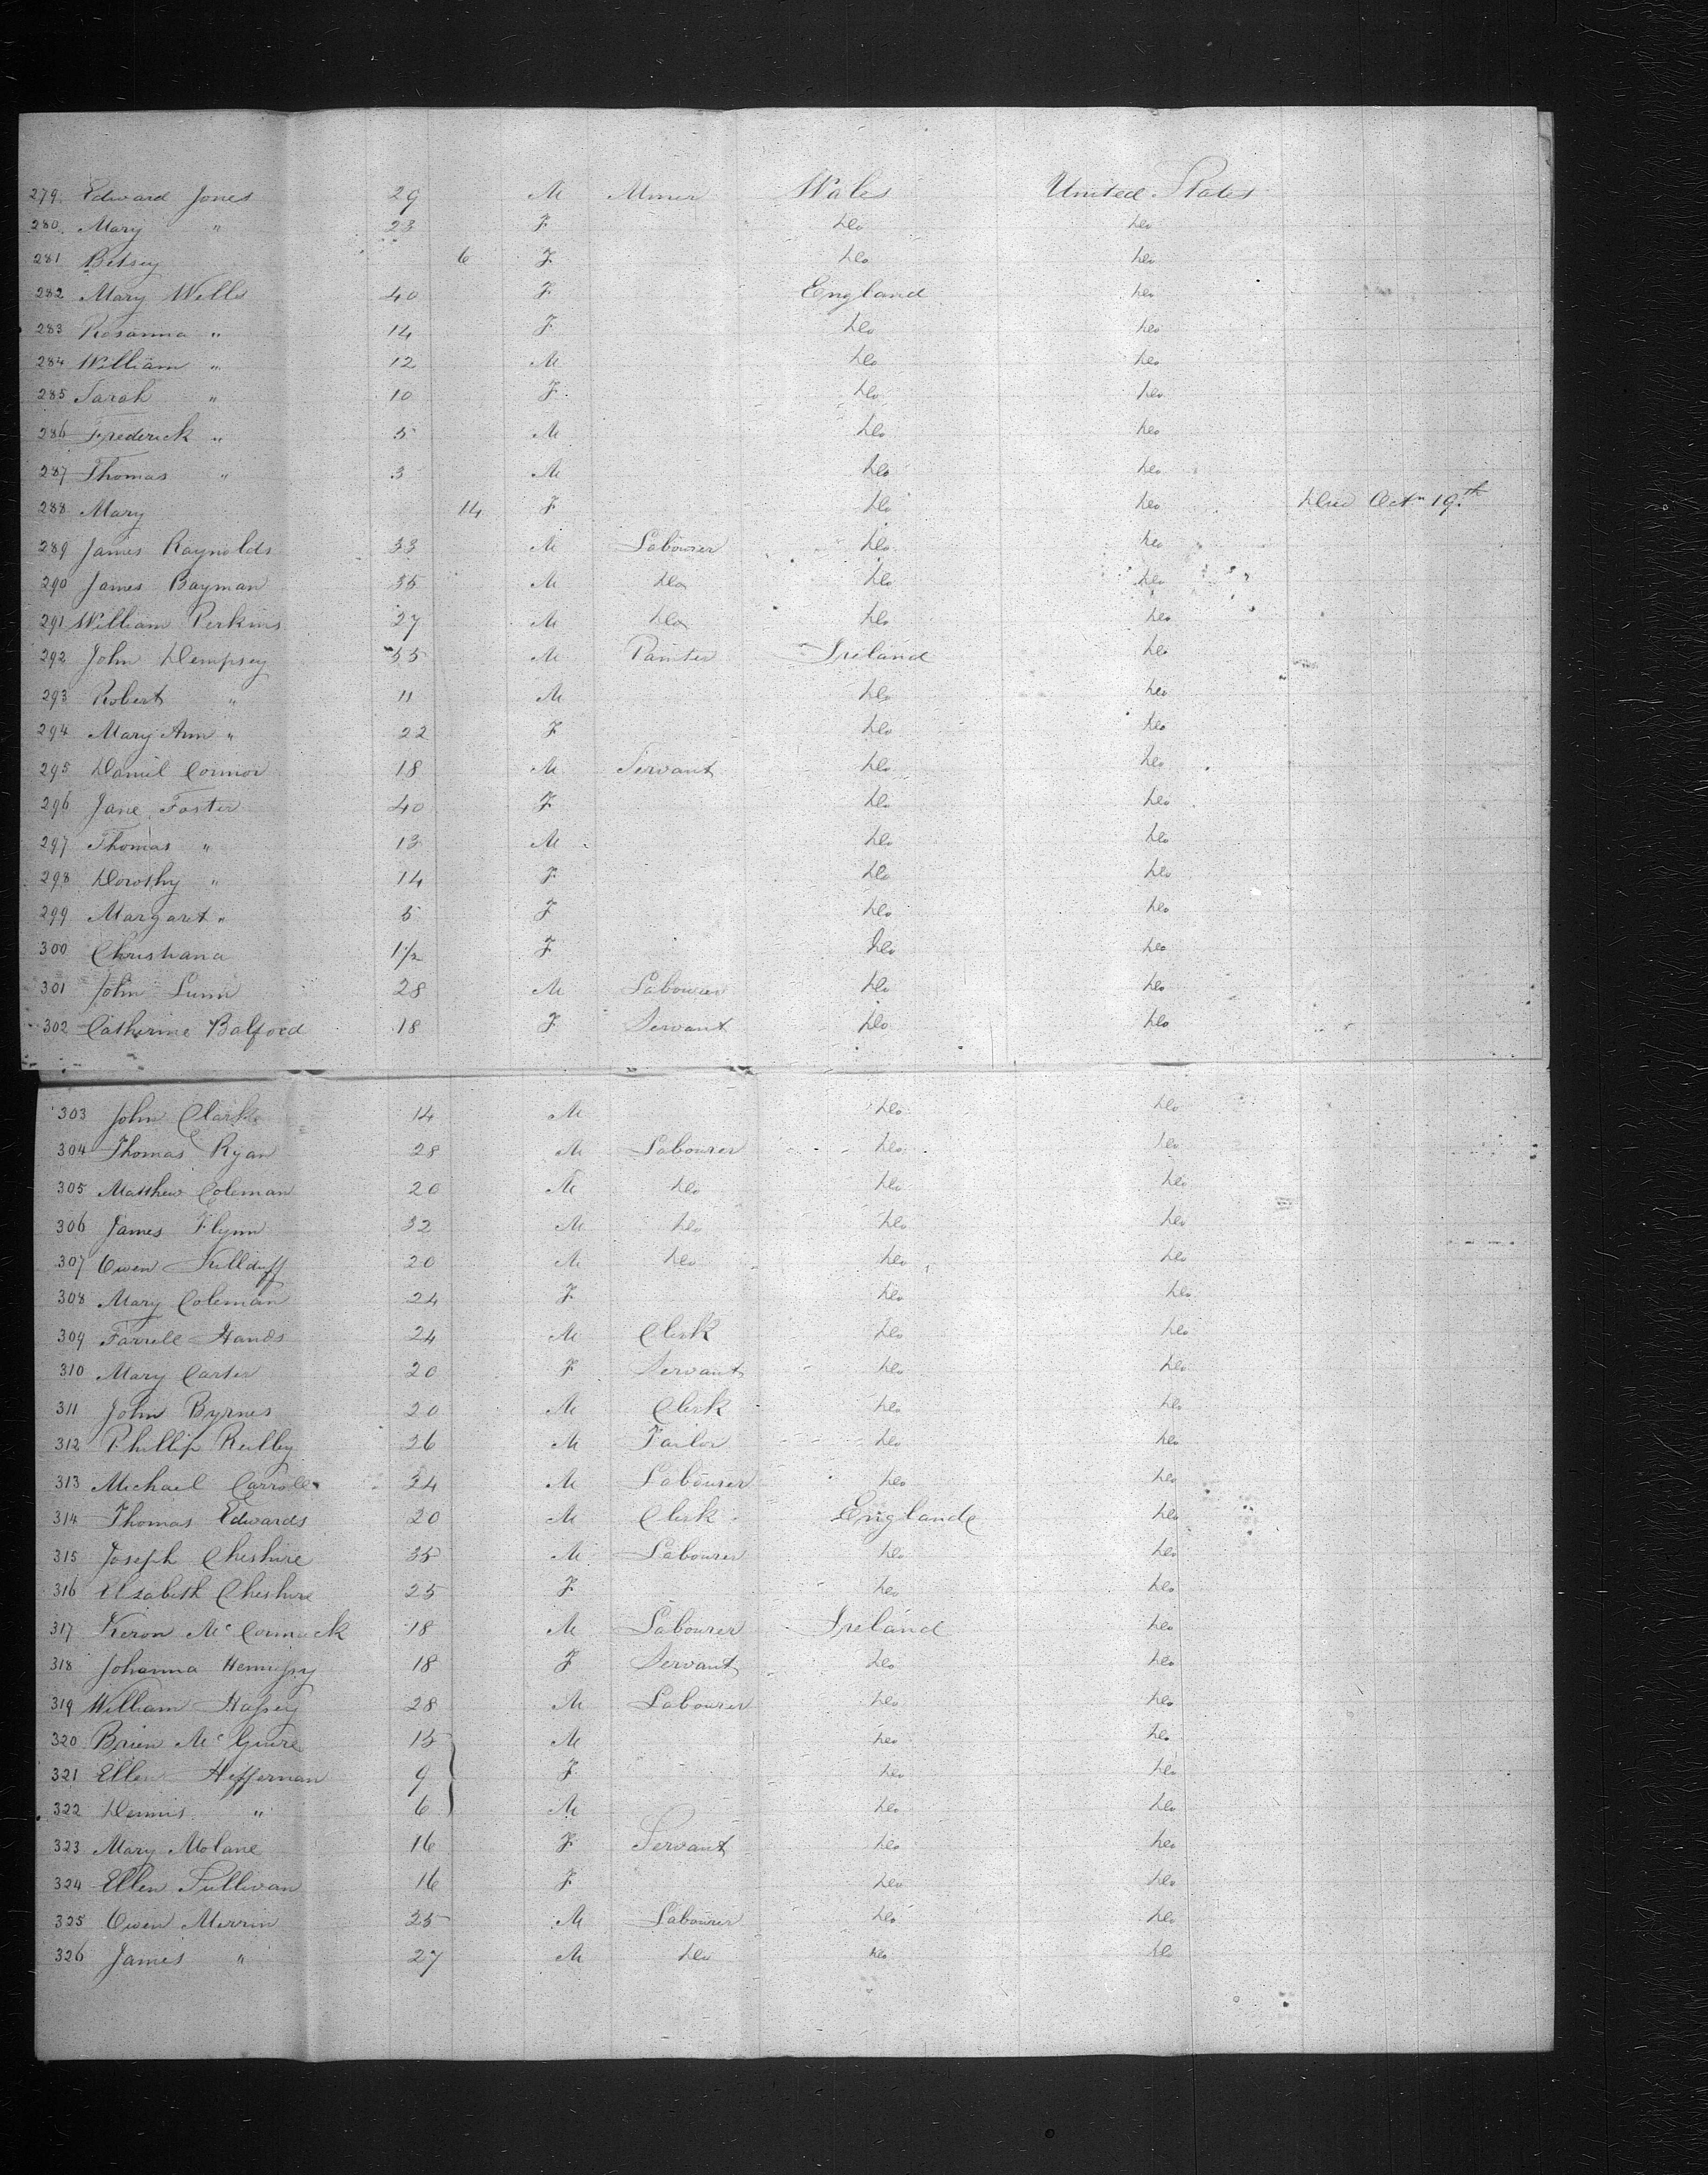 279. Edward Jones 29 M Miner Wales United States
280. Mary " 23 F do do
281 Betsey 6 F do do
282 Mary Wells 40 F England do
283 Rosanna " 14 F do do
284 William " 12 M do do
285 Sarah " 10 F do do
286 Frederick " 5 M do do
287 Thomas " 3 M do do
288 Mary 14 F do do Died Oct. 19th
289 James Raynolds 33 M Labourer do do
290 James Bayman 35 M do do do
291 William Perkins 27 M do do do
292 John Dempsey 55 M Painter Ireland do
293 Robert " 11 M do do
294 Mary Ann " 22 F do do
295 Daniel Connor 18 M Servant do do
296 Jane Foster 40 F do do
297 Thomas " 13 M do do
298 Dorothy " 14 F do do
299 Margaret " 5 F do do
300 Christiana 1 1/2 F do do
301 John Lunn 28 M Labourer do do
302 Catherine Balford 18 F Servant do do
303 John Clark 14 M do do
304 Thomas Ryan 28 M Labourer do do
305 Matthew Coleman 20 M do do do
306 James Flynn 32 M do do do
307 Owen Killduff 20 M do do do
308 Mary Coleman 24 F do do
309 Farrell Hands 24 M Clerk do do
310 Mary Carter 20 F Servant do do
311 John Byrnes 20 M Clerk do do
312 Phillip Reilley 36 M Tailor do do
313 Michael Carroll 34 M Labourer do do
314 Thomas Edwards 20 M Clerk England do
315 Joseph Cheshire 35 M Labourer do do
316 Elzabeth Cheshire 25 F do do
317 Keron McCormack 18 M Labourer Ireland do
318 Johanna 18 F Servant do do
319 William Hassey 28 M Labourer do do
320 Brien McGuire 15 M do do
321 Ellen Heffernan 9 F do do
322 Dennis " 6 M do do
323 Mary Molane 16 F Servant do do
324 Ellen Sullivan 16 F do do
325 Owen Merrin 35 M Labourer do do
326 James " 27 M do do do